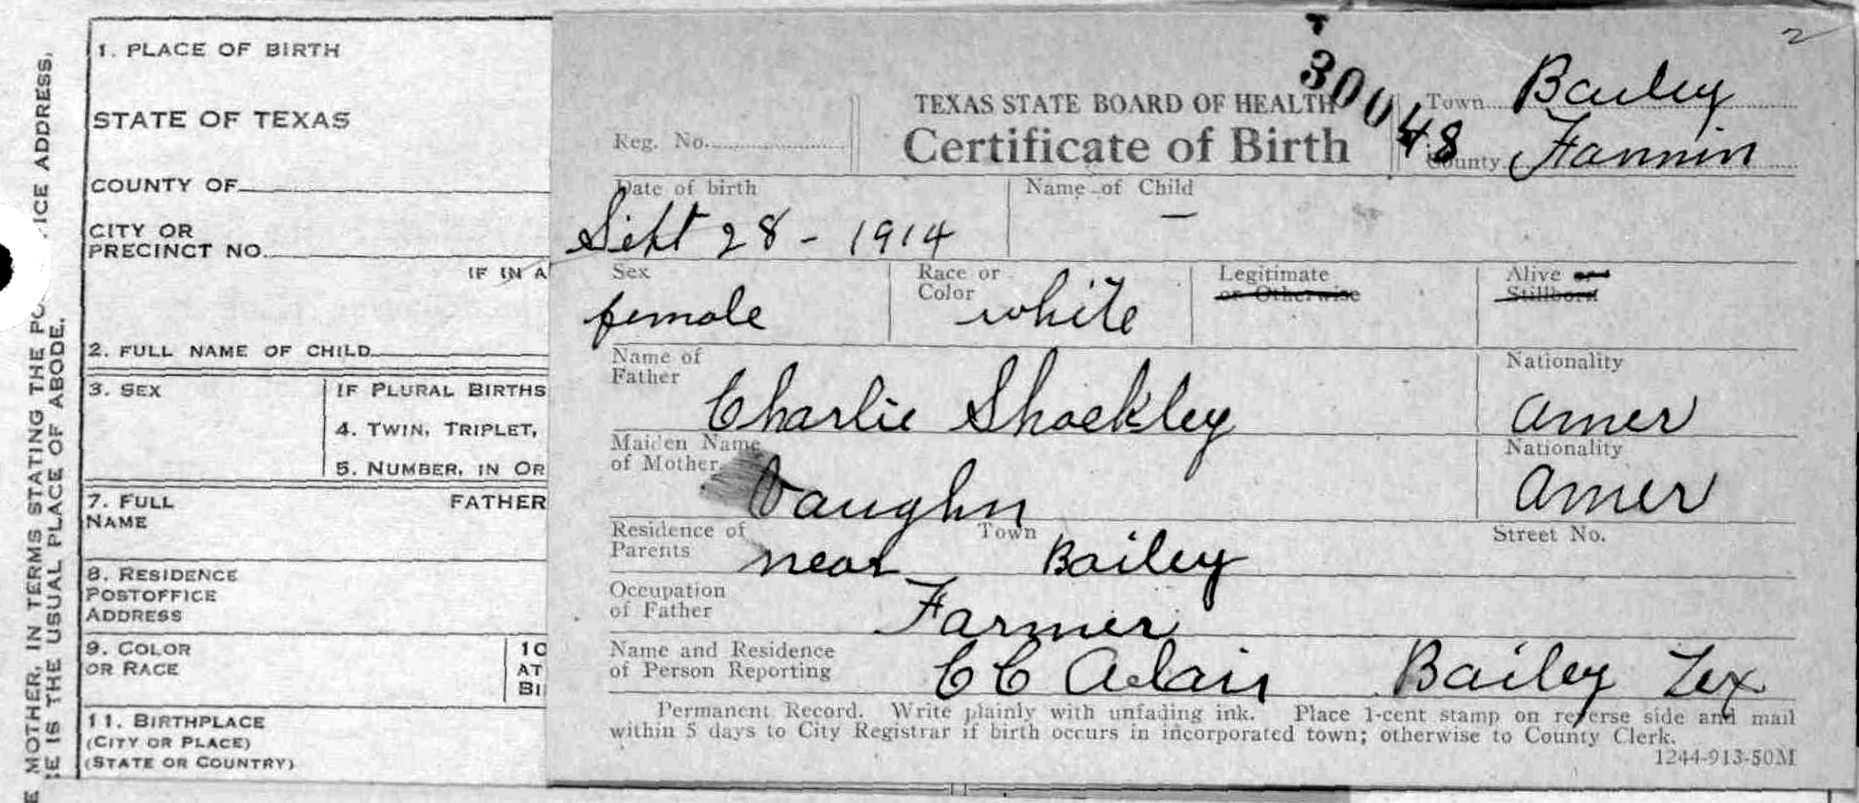 E MOTHER, IN TERMS STATING THE PO ICE ADDRESS,
E IS THE USUAL PLACE OF ABODE.
1. PLACE OF BIRTH
STATE OF TEXAS
COUNTY OF
CITY OR
PRECINCT NO.
IF IN A
2. FULL NAME OF CHILD
3. SEX
IF PLURAL BIRTHS
4. TWIN, TRIPLET,
5. NUMBER, IN OR
7. FULL
NAME
FATHER
8. RESIDENCE
POSTOFFICE
ADDRESS
9. COLOR
OR RACE
10
AT
BI
11. BIRTHPLACE
(CITY OR PLACE)
(STATE OR COUNTRY)
2
30048
Reg. No.
TEXAS STATE BOARD OF HEALTH
Certificate of Birth
Town Bailey
County Fannin
Date of birth
Sept 28 - 1914
Name of Child
—
Sex
female
Race or
Color
white
Legitimate
or Otherwise
Alive or
Stillborn
Name of
Father
Charlie Shockley
Nationality
Amer
Maiden Name
of Mother
Vaughn
Nationality
Amer
Residence of
Parents
near
Town
Bailey
Street No.
Occupation
of Father
Farmer
Name and Residence
of Person Reporting
CC Adair Bailey Tex
Permanent Record. Write plainly with unfading ink. Place 1-cent stamp on reverse side and mail
within 5 days to City Registrar if birth occurs in incorporated town; otherwise to County Clerk.
1244-913-50M